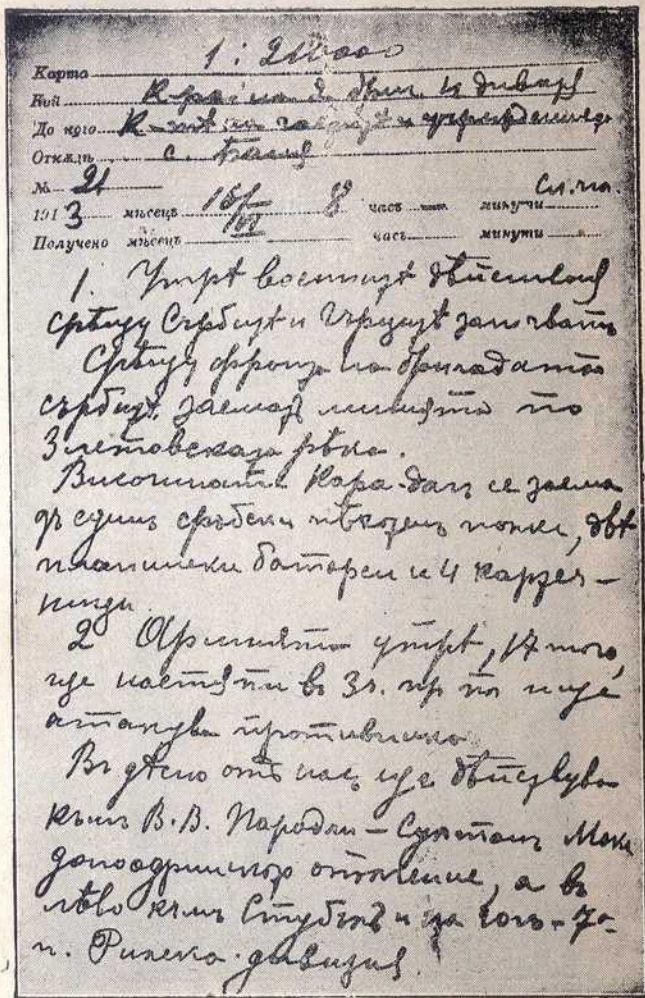 Карта 1 : 210000
Кой дивизия
До кого К-тѣ на частитѣ и учрежденията
Откждѣ с.
№ 21
1913 мѣсецъ 15/VI 8 часъ — минути сл. пл.
Получено мѣсецъ часъ минути
1. Утрѣ военнитѣ дѣйствия
срѣщу Сърбитѣ и Гърцитѣ започватъ
Срѣщу фронта на бригадата
сърбитѣ заематъ линията по
Злетовската рѣка.
Височината Кара-даг се заема
отъ единъ сръбски пѣхотенъ полкъ, двѣ
планински батареи и 4 картеч-
ници.
2 Армията утрѣ, 17 того,
ще настѫпи въ 3 ч. пр пл и ще
атакува противника
Въ дѣсно отъ насъ ще дѣйствува
къмъ В. В. Пародли – Султанъ Маке
доноодринско опълчение, а въ
лѣво къмъ и на югъ – 7а
п. Рилска дивизия